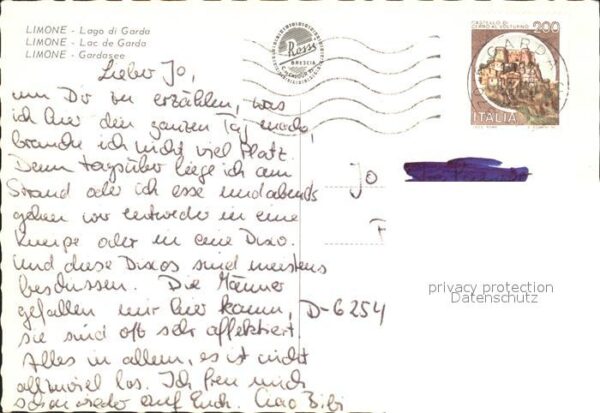 LIMONE - Lago di Garda
LIMONE - Lac de Garda
LIMONE - Gardasee
Rossi
BRESCIA
CASTELLO DI
CERRO AL VOLTURNO
200
GARDA
ITALIA
Lieber Jo,
um Dir zu erzählen, was
ich hier den ganzen Tag mache,
brauche ich nicht viel Platz.
Denn tagsüber liege ich am
Strand oder ich esse und abends
gehen wir entweder in eine
Kneipe oder in eine Disco.
Und diese Discos sind meistens
beschissen. Die Männer
gefallen mir hier kaum,
sie sind oft sehr affektiert.
Alles in allem, es ist nicht
allzuviel los. Ich freu mich
schon wieder auf Euch. Ciao Bibi
Jo
F
D-6254
privacy protection
Datenschutz